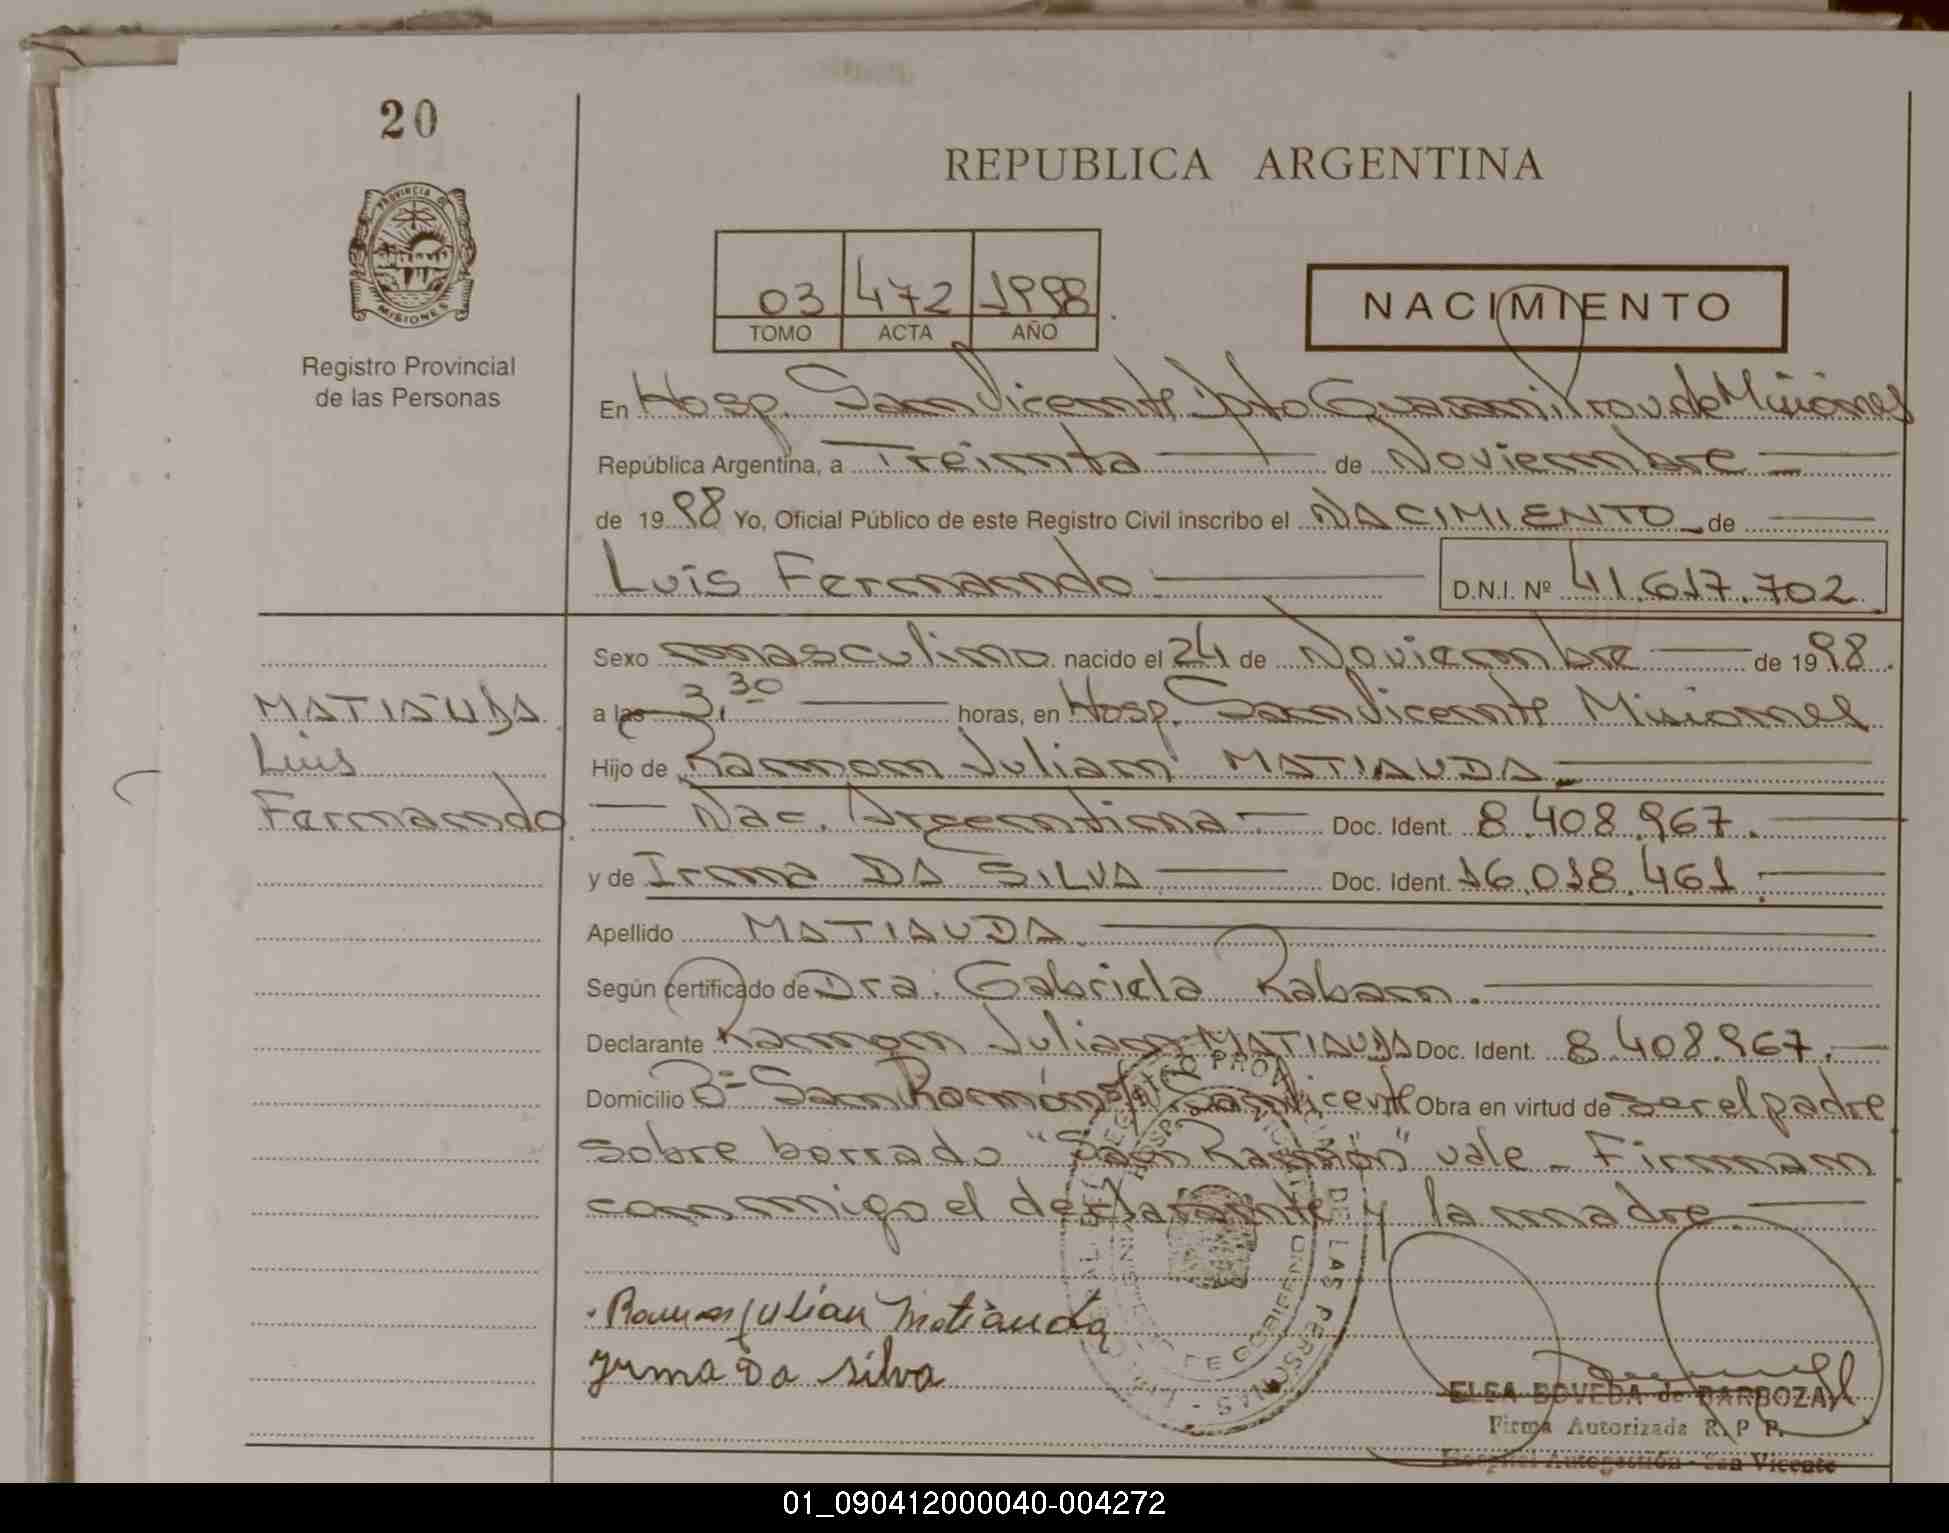 20
PROVINCIA DE
MISIONES
Registro Provincial
de las Personas
REPUBLICA ARGENTINA
03 472 1998
TOMO ACTA AÑO
NACIMIENTO
En Hosp. San Vicente Dpto Guarani, Prov. de Misiones
República Argentina, a Treinta de Noviembre
de 1998 Yo, Oficial Público de este Registro Civil inscribo el NACIMIENTO de
Luis Fernando D.N.I. Nº 41.617.702
Sexo masculino nacido el 24 de Noviembre de 1998.
MATIAUDA a las 3,30 horas, en Hosp. San Vicente Misiones
Luis Hijo de Ramon Julian MATIAUDA
Fernando. Nac. Argentina Doc. Ident. 8.408.967.
y de Irma DA SILVA Doc. Ident. 16.018.461.
Apellido MATIAUDA
Según certificado de Dra. Gabriela Raban.
Declarante Ramon Julian MATIAUDA Doc. Ident. 8.408.967.
Domicilio Bº San Ramón San Vicente Obra en virtud de ser el padre
sobre borrado "San Ramón" vale - Firman
conmigo el declarante y la madre.
DE LAS PERSONAS
DE GOBIERNO
Ramon Julian Matiauda
Irma Da silva
ELSA BOVEDA de BARBOZA
Firma Autorizada R. P P.
Hospital Autogestión - San Vicente
01_090412000040-004272